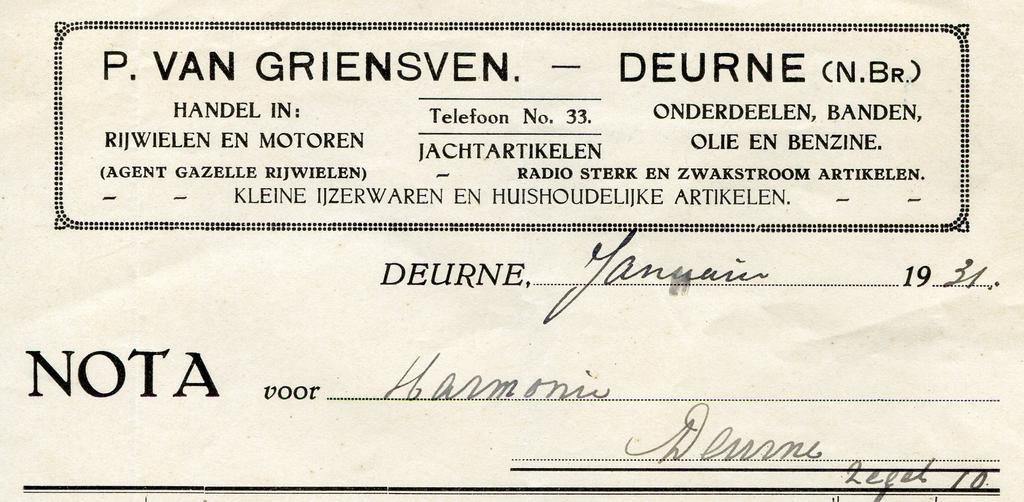 P. VAN GRIENSVEN. — DEURNE (N.BR.)
HANDEL IN:
RIJWIELEN EN MOTOREN
(AGENT GAZELLE RIJWIELEN)
Telefoon No. 33.
JACHTARTIKELEN
ONDERDEELEN, BANDEN,
OLIE EN BENZINE.
– RADIO STERK EN ZWAKSTROOM ARTIKELEN.
– – KLEINE IJZERWAREN EN HUISHOUDELIJKE ARTIKELEN. – –
DEURNE, Januari 1931.
NOTA voor Harmonie
Deurne
Zegel 10